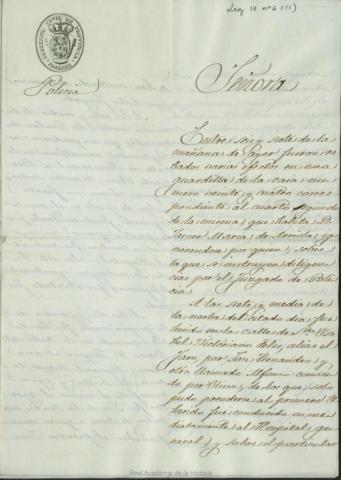 Leg 18 nº 6 (11)
Policia
Señora
Entre seis y siete de la
mañana de ayer fueron ro-
bados varios efectos en una
guardilla de la casa nú-
mero veinte y cuatro corres-
pondiente al cuarto segundo
de la misma, que habita D.
Javier Maria de
norandose por quien, sobre
lo que se instruyen diligen-
cias por el Juzgado de Poli-
cia.
A las siete y media de
la noche del citado dia fue
herido en la calle de Sta. Ysa-
bel Victoriano alias el
por José Hernandez y
otro llamado Alfonso conoci-
do por de los que solo
pudo prenderse al primero. El
herido fue conducido inme-
diatamente al Hospital ge-
neral, y sobre el particular
Real Academia de la Historia